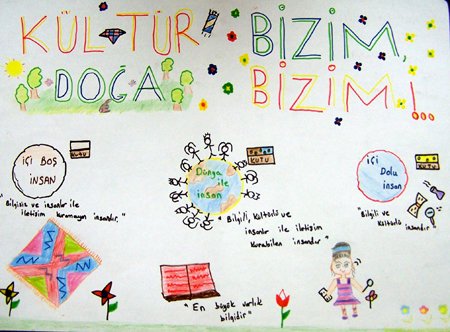 KÜLTÜR BİZİM,
DOĞA BİZİM!...
İÇİ BOŞ
İNSAN
KUTU
"Bilgisiz ve insanlar ile
iletişim kuramayan insanlar."
Dünya
ile
insan
KUTU
"Bilgili, Kültürlü ve
insanlar ile iletişim
kurabilen insandır"
İÇİ
Dolu
insan
KUTU
"Bilgili ve
Kültürlü insandır"
"En büyük varlık
bilgidir"